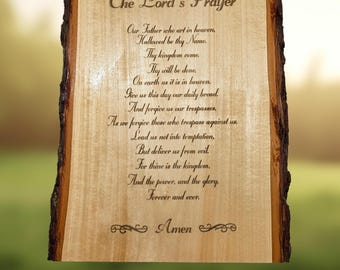 The Lord's Prayer
Our Father who art in heaven,
Hallowed be thy Name.
Thy kingdom come.
Thy will be done,
On earth as it is in heaven.
Give us this day our daily bread.
And forgive us our trespasses,
As we forgive those who trespass against us.
Lead us not into temptation,
But deliver us from evil.
For thine is the kingdom,
And the power, and the glory,
Forever and ever.
Amen